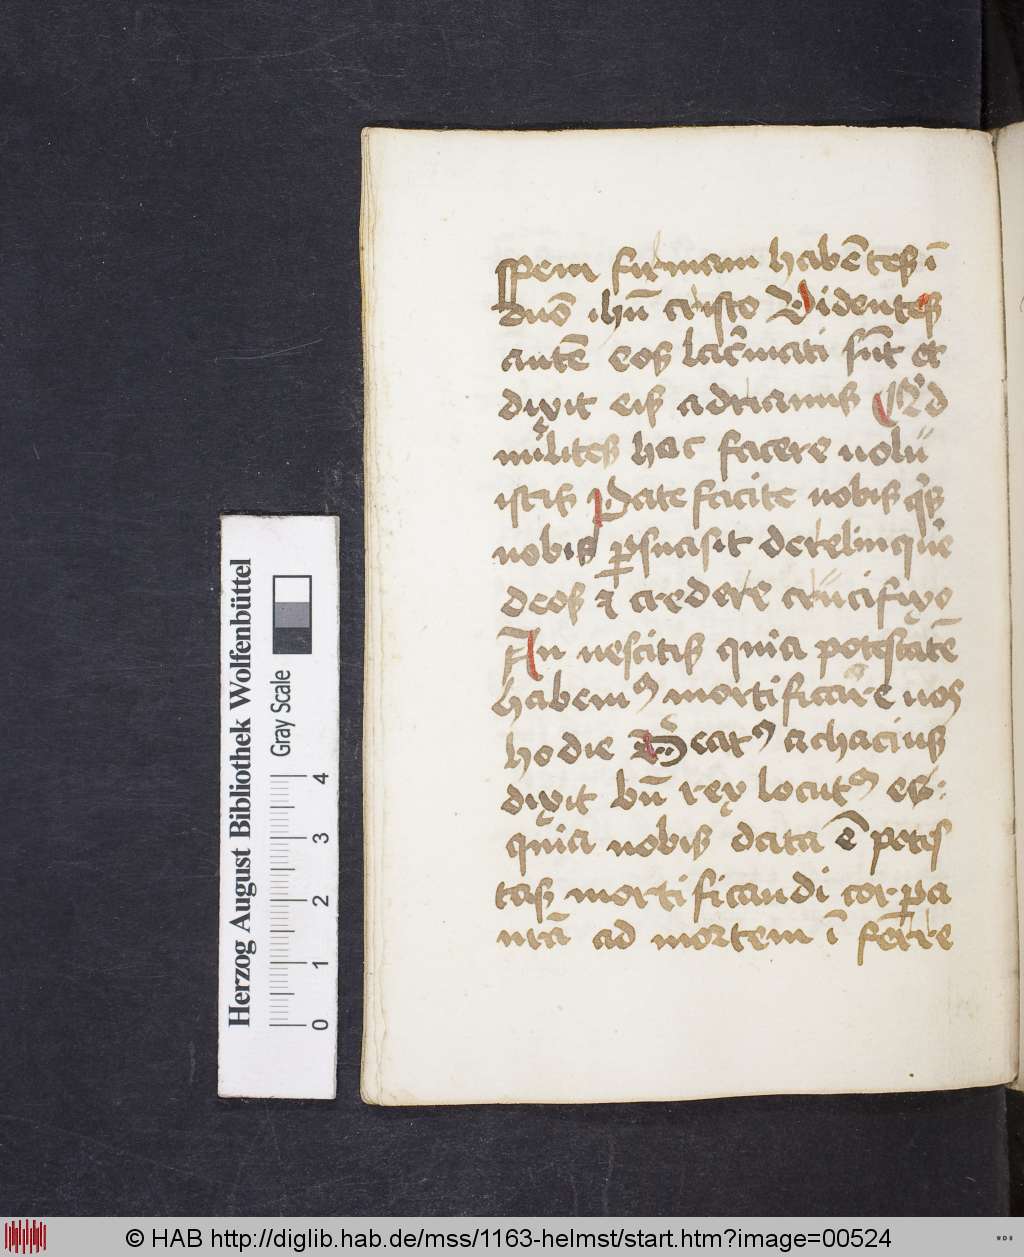 spem firmam habētes ī
dnō ihū cristo Uidentes
autē eos lacrimati sūt et
dixit eis adrianus Qid
milites hac facere uolu
istis Pate facite nobis q's
nobis psuasit derelinque
deos & credere crucifixo
An nescitis quia potestatē
habem9 mortificare uos
hodie Beat9 achacius
dixit bn̄ rex locut9 es:
quia nobis data ē potes
tas mortificandi corpa
nrā ad mortem ī ferre
Herzog August Bibliothek Wolfenbüttel
Gray Scale
0 1 2 3 4
© HAB http://diglib.hab.de/mss/1163-helmst/start.htm?image=00524